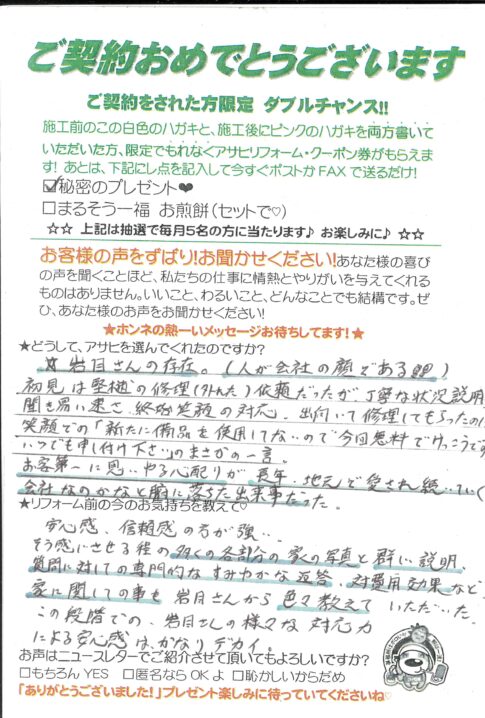 ご契約おめでとうございます
ご契約をされた方限定 ダブルチャンス!!
施工前のこの白色のハガキと、施工後にピンクのハガキを両方書いて
いただいた方、限定でもれなくアサヒリフォーム・クーポン券がもらえま
す! あとは、下記にレ点を記入して今すぐポストかFAXで送るだけ!
☑秘密のプレゼント❤
□まるそう一福 お煎餅(セットで♡)
☆☆ 上記は抽選で毎月5名の方に当たります♪ お楽しみに♪ ☆☆
お客様の声をずばり!お聞かせください!あなた様の喜び
の声を聞くことほど、私たちの仕事に情熱とやりがいを与えてくれる
ものはありません。いいこと、わるいこと、どんなことでも結構です。ぜ
ひ、あなた様のお声をお聞かせください!
★ホンネの熱ーいメッセージお待ちしてます!★
★どうして、アサヒを選んでくれたのですか?
☆岩月さんの存在。(人が会社の顔である)
初見は竪樋の修理(外れた)依頼だったが、丁寧な状況説明
聞き易い速さ、終始笑顔の対応。出向いて修理してもらったのに
笑顔での「新たに備品を使用してな…ので今回無料でけっこうです
いつでも申し付け下さい」のまさかの一言。
お客第一に思…やる心配りが長年、地元で愛され続…ていく
会社なのかなと腑に落ちた出来事だった。
★リフォーム前の今のお気持ちを教えて♡
安心感、信頼感の方が強…
そう感じさせる程の多くの各部分の家の写真と詳しい説明、
質問に対しての専門的なすみやかな返答、対費用効果など
家に関しての事も岩月さんから色々教えていただ…た。
この段階での、岩月さんの様々な対応力
による安心感は、かなりデカイ。
お声はニュースレターでご紹介させて頂いてもよろしいですか?
□もちろんYES □匿名ならOKよ □恥かしいからだめ
「ありがとうございました!」プレゼント楽しみに待っていてくださいね♡